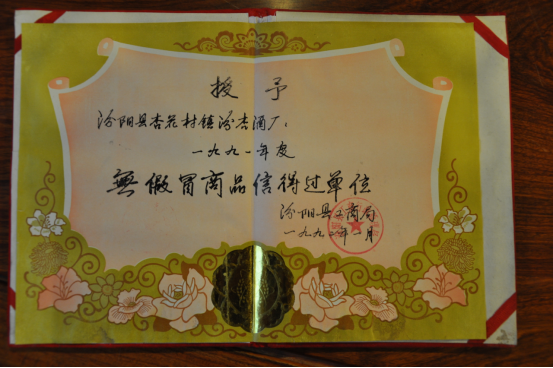 授予
汾阳县杏花村镇汾杏酒厂：
一九九一年度
無假冒商品信得过单位
汾阳县工商局
一九九一年一月